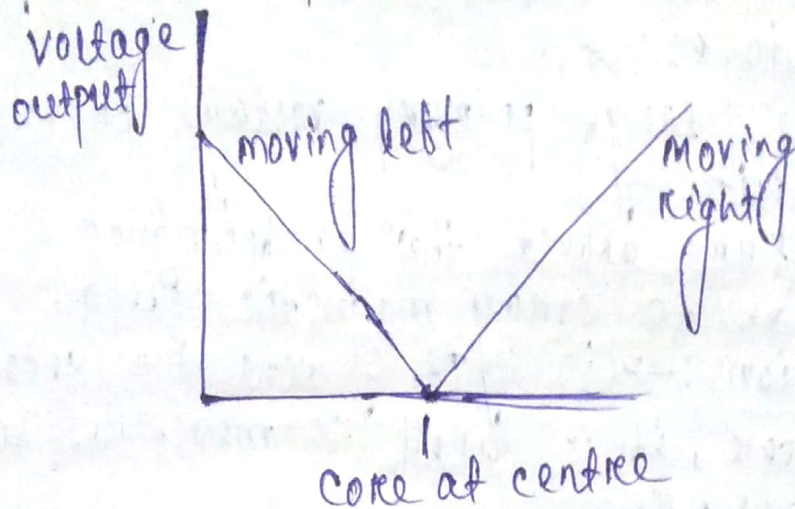 voltage
output
moving left
moving
right
core at centre